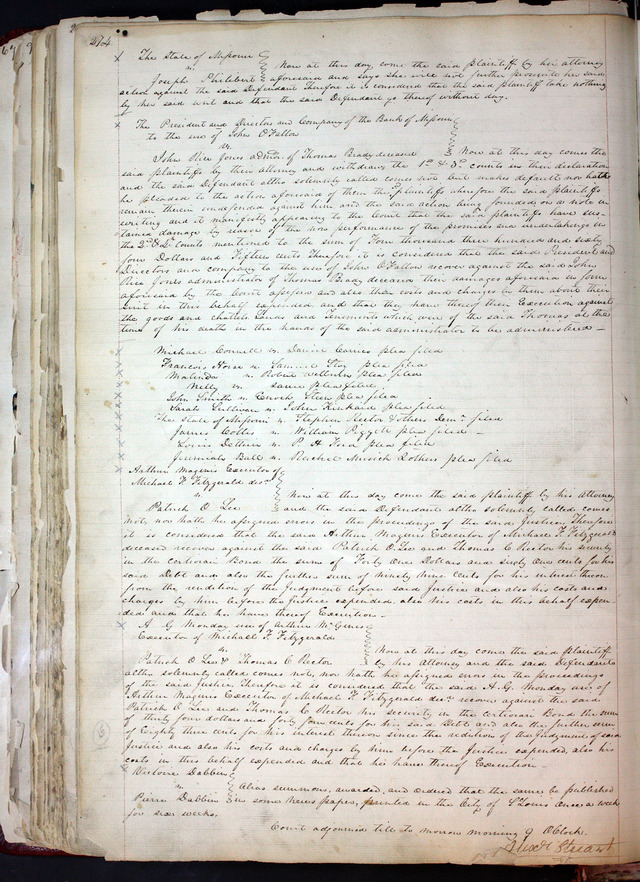 274
The State of Missouri
vs
Joseph Philibert
Now at this day, come the said plaintiff by her attorney
aforesaid and says she will not further prosecute her said
action against the said Defendant Therefore it is considered that the said plaintiff take nothing
by her said writ and that the said Defendant go thereof without day.
The President and Directors and Company of the Bank of Missouri
to the use of John O'Fallon
vs
John Rice Jones admr. of Thomas Brady deceased
Now at this day comes the
said plaintiffs by their attorney and withdraws the 1st & 3d counts in their declaration
and the said Defendant altho solemnly called comes not but makes default nor hath
he pleaded to the action aforesaid of them the plaintiffs wherefore the said plaintiffs
remain therein undefended against him and the said action being founded on a note in
writing and it manifestly appearing to the Court that the said plaintiffs have sus-
tained damage by reason of the non performance of the promises and undertakings in
the 2d & counts mentioned to the sum of Four thousand three hundred and sixty
four Dollars and Fifteen cents Therefore it is considered that the said President and
Directors and company to the use of John O'Fallon recover against the said John
Rice Jones administrator of Thomas Brady deceased their damages aforesaid in form
aforesaid by the Court assessed and also their costs and charges by them about their
suit in this behalf expended and that they have thereof their Execution against
the goods and chattels Lands and Tenements which were of the said Thomas at the
time of his death in the hands of the said administrator to be administered
Michael Connell vs. Daniel plea filed
Francois vs Samuel plea filed
Malinda vs Robert plea filed
Nelly vs. same plea filed,
John Smith vs Enoch Steen plea filed
Sarah Sullivan vs John plea filed
The State of Missouri vs Stephen Rector & others Demr. filed
James vs William plea filed
Louis vs P. H. Ford plea filed
Jeremiah Ball vs Rachel Musick & others plea filed
Arthur Magenis Executor of
Michael F. Fitzgerald decd.
vs
Patrick O Lee
Now at this day come the said plaintiff by his Attorney
and the said Defendant altho solemnly called comes
not, nor hath he assigned errors in the proceedings of the said Justice, Therefore
it is considered that the said Arthur Magenis Executor of Michael F. Fitzgerald
deceased recover against the said Patrick O. Lee and Thomas C Rector his security
in the certiorari Bond the sum of Forty One Dollars and sixty One cents for his
said Debt and also the further sum of ninety nine Cents for his interest thereon
from the rendition of the Judgment before said Justice and also his costs and
charges by him before the Justice expended, also his costs in this behalf expen-
ded and that he have thereof Execution.
A G Monday use of Arthur McGenis
Executor of Michael F. Fitzgerald
vs
Patrick O Lee & Thomas C Rector
Now at this day come the said plaintiff
by his attorney and the said Defendants
altho solemnly called comes not, nor hath he assigned errors in the proceedings
of the said Justice, Therefore it is considered that the said A. G. Monday use of
Arthur Magenis Executor of Michael F. Fitzgerald decd. recover against the said
Patrick O Lee and Thomas C. Rector his security in the certiorari Bond the sum
of thirty four dollars and forty four cents for his said Debt and also the further sum
of Eighty three cents for his interest thereon since the rendition of the Judgment of said
Justice and also his costs and charges by him before the Justice expended, also his
costs in this behalf expended and that he have thereof Execution.
Victoire Dabbin
vs
Pierre Dabbin
Alias summons, awarded, and ordered that the same be published
in some News paper, printed in the City of St Louis once a week
for six weeks.
Court adjourned till to morrow morning 9 OClock.
Alexr Stuart